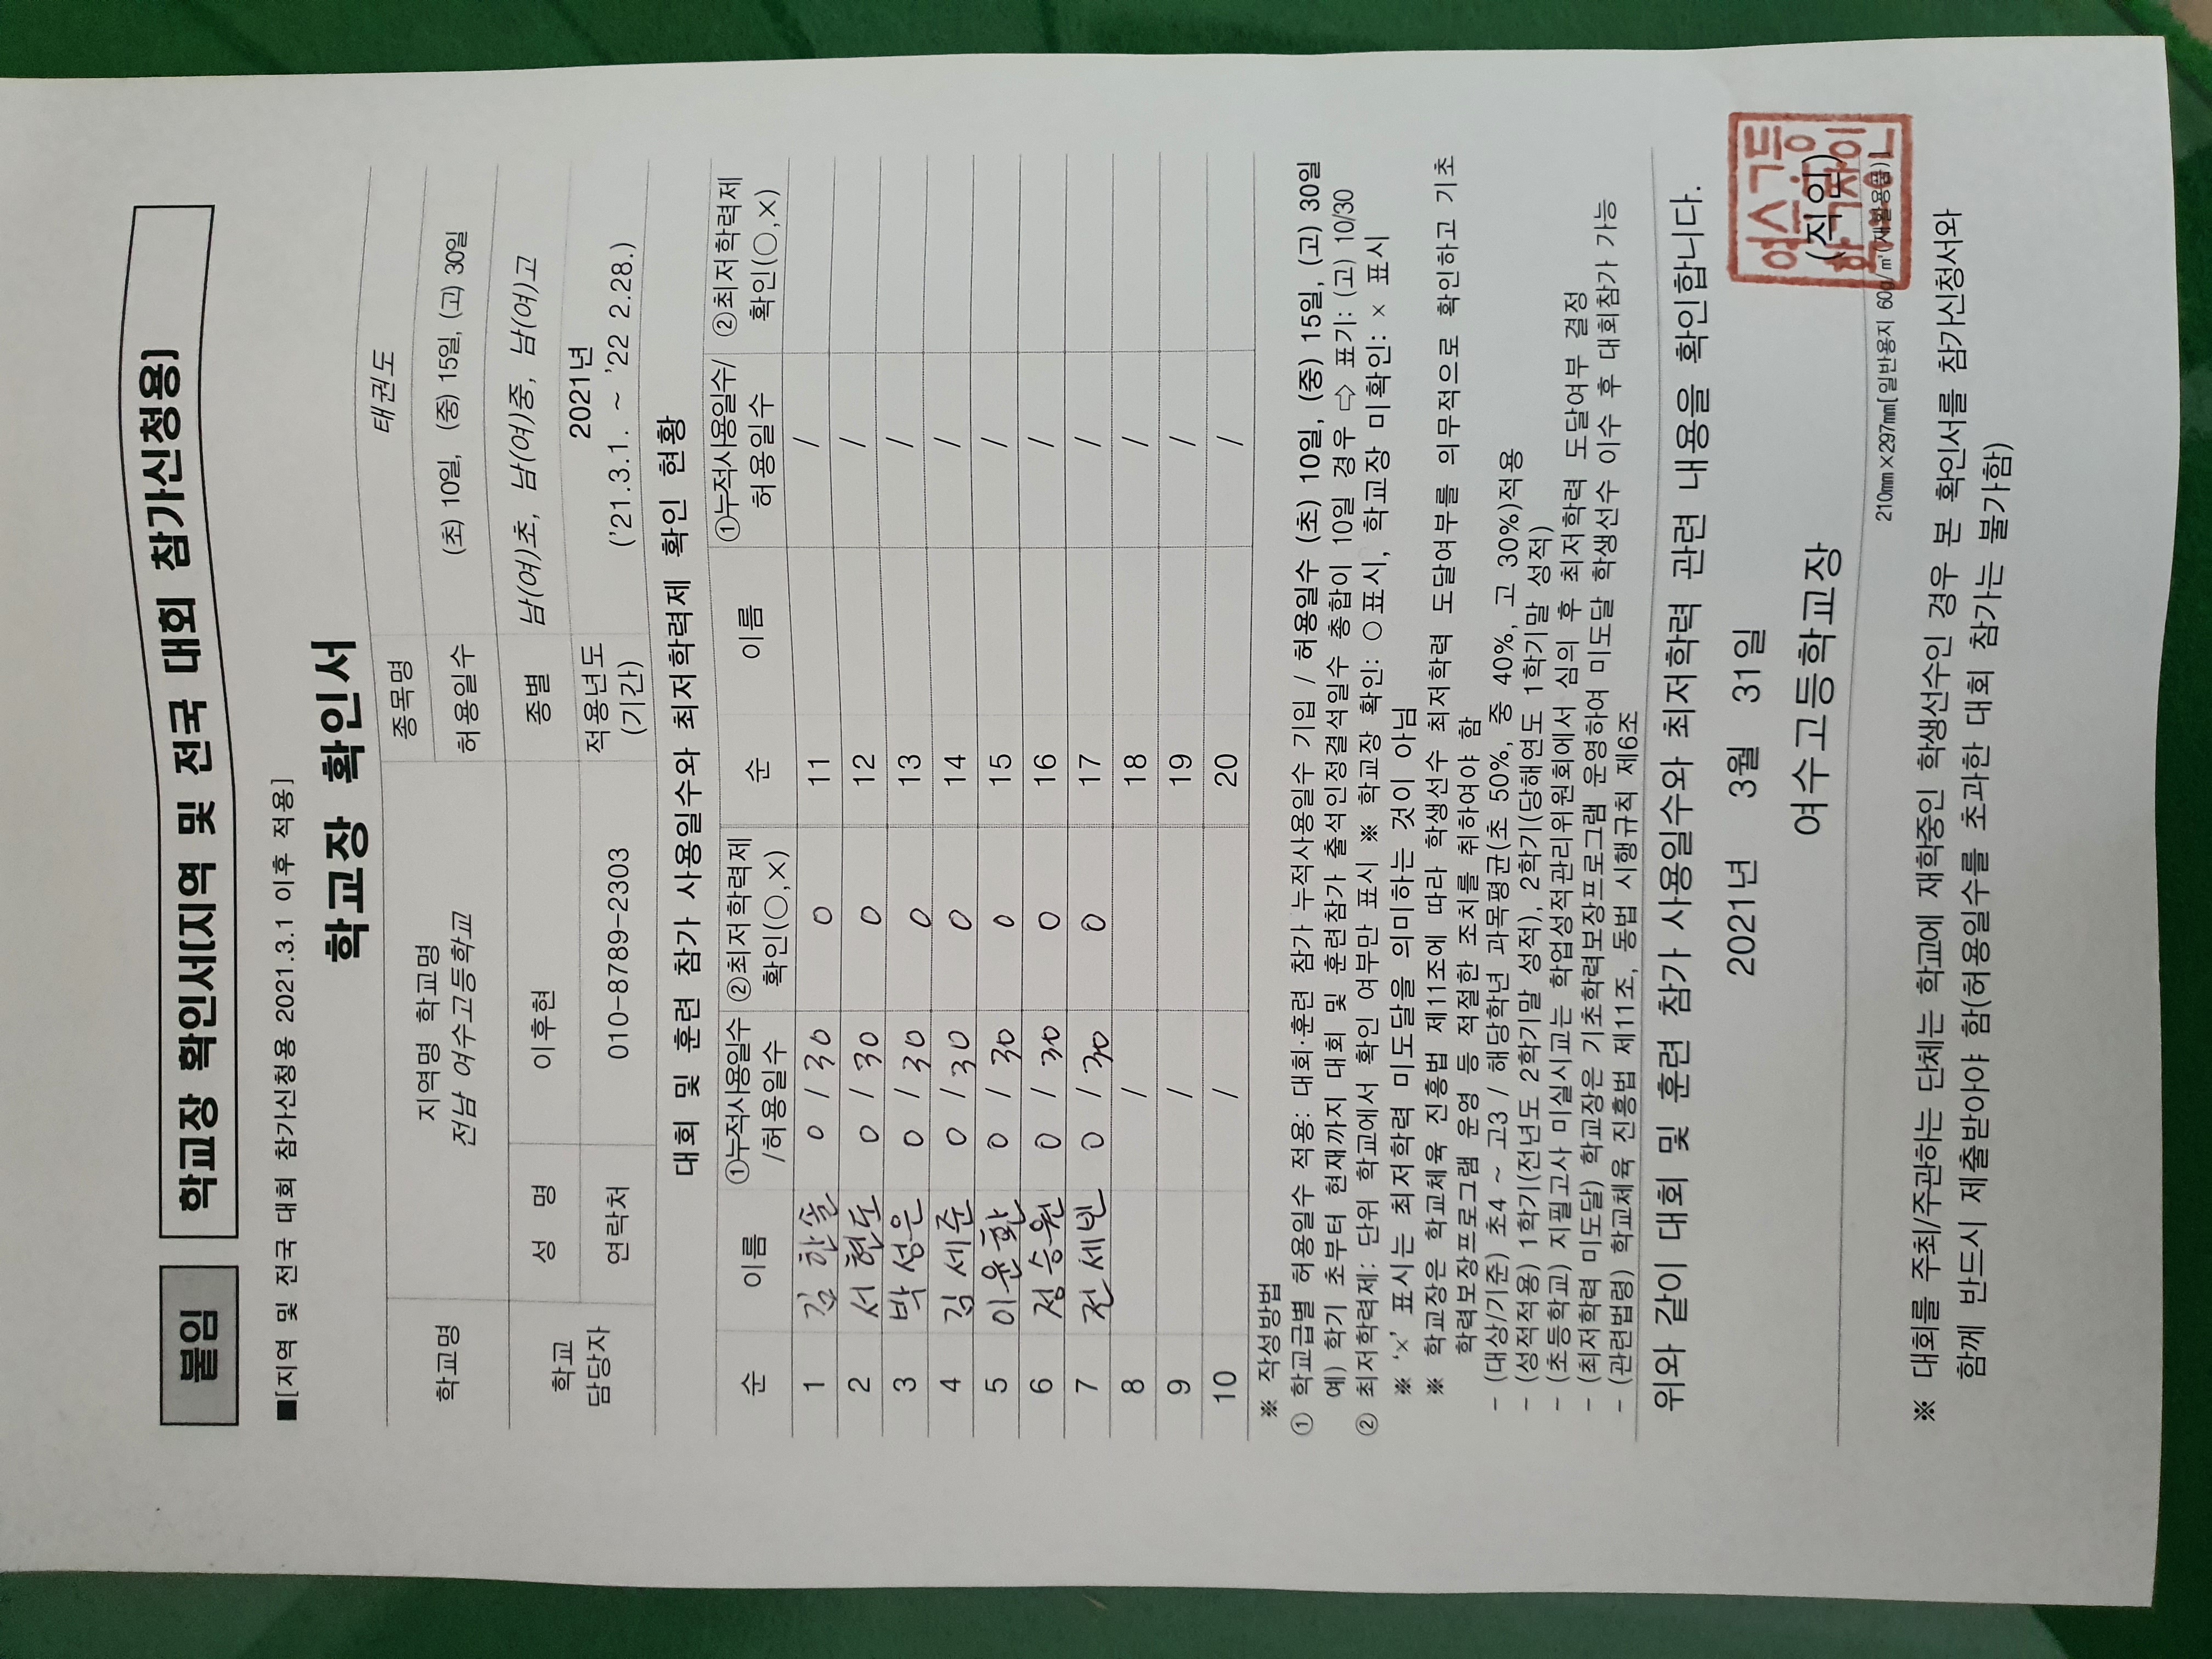 붙임 학교장 확인서(지역 및 전국 대회 참가신청용)
■[지역 및 전국 대회 참가신청용 2021.3.1 이후 적용]
학교장 확인서
학교명 지역명 학교명 종목명 태권도
전남 여수고등학교 허용일수 (초) 10일, (중) 15일, (고) 30일
학교 담당자 성 명 이후현 종별 남(여)초, 남(여)중, 남(여)고
연락처 010-8789-2303 적용년도 2021년
(기간) ('21.3.1. ~ '22 2.28.)
대회 및 훈련 참가 사용일수와 최저학력제 확인 현황
순 이름 ①누적사용일수 ②최저학력제 순 이름 ①누적사용일수/ ②최저학력제
/허용일수 확인(○,×) 허용일수 확인(○,×)
1 김한솔 0 / 30 0 11 /
2 서현도 0 / 30 0 12 /
3 박성은 0 / 30 0 13 /
4 김세준 0 / 30 0 14 /
5 이윤환 0 / 30 0 15 /
6 정승원 0 / 30 0 16 /
7 전세빈 0 / 30 0 17 /
8 / 18 /
9 / 19 /
10 / 20 /
※ 작성방법
① 학교급별 허용일수 적용: 대회·훈련 참가 누적사용일수 기입 / 허용일수 (초) 10일, (중) 15일, (고) 30일
예) 학기 초부터 현재까지 대회 및 훈련참가 출석인정결석일수 총합이 10일 경우 ⇨ 표기: (고) 10/30
② 최저학력제: 단위 학교에서 확인 여부만 표시 ※ 학교장 확인: ○표시, 학교장 미확인: × 표시
※ '×' 표시는 최저학력 미도달을 의미하는 것이 아님
※ 학교장은 학교체육 진흥법 제11조에 따라 학생선수 최저학력 도달여부를 의무적으로 확인하고 기초
학력보장프로그램 운영 등 적절한 조치를 취하여야 함
- (대상/기준) 초4 ~ 고3 / 해당학년 과목평균(초 50%, 중 40%, 고 30%)적용
- (성적적용) 1학기(전년도 2학기말 성적), 2학기(당해연도 1학기말 성적)
- (초등학교) 지필고사 미실시교는 학업성적관리위원회에서 심의 후 최저학력 도달여부 결정
- (최저학력 미도달) 학교장은 기초학력보장프로그램 운영하여 미도달 학생선수 이수 후 대회참가 가능
- (관련법령) 학교체육 진흥법 제11조, 동법 시행규칙 제6조
위와 같이 대회 및 훈련 참가 사용일수와 최저학력 관련 내용을 확인합니다.
2021년 3월 31일
여수고등학교장 (직인)
210mm×297mm[일반용지 60g/㎡(재활용품)]
※ 대회를 주최/주관하는 단체는 학교에 재학중인 학생선수인 경우 본 확인서를 참가신청서와
함께 반드시 제출받아야 함(허용일수를 초과한 대회 참가는 불가함)